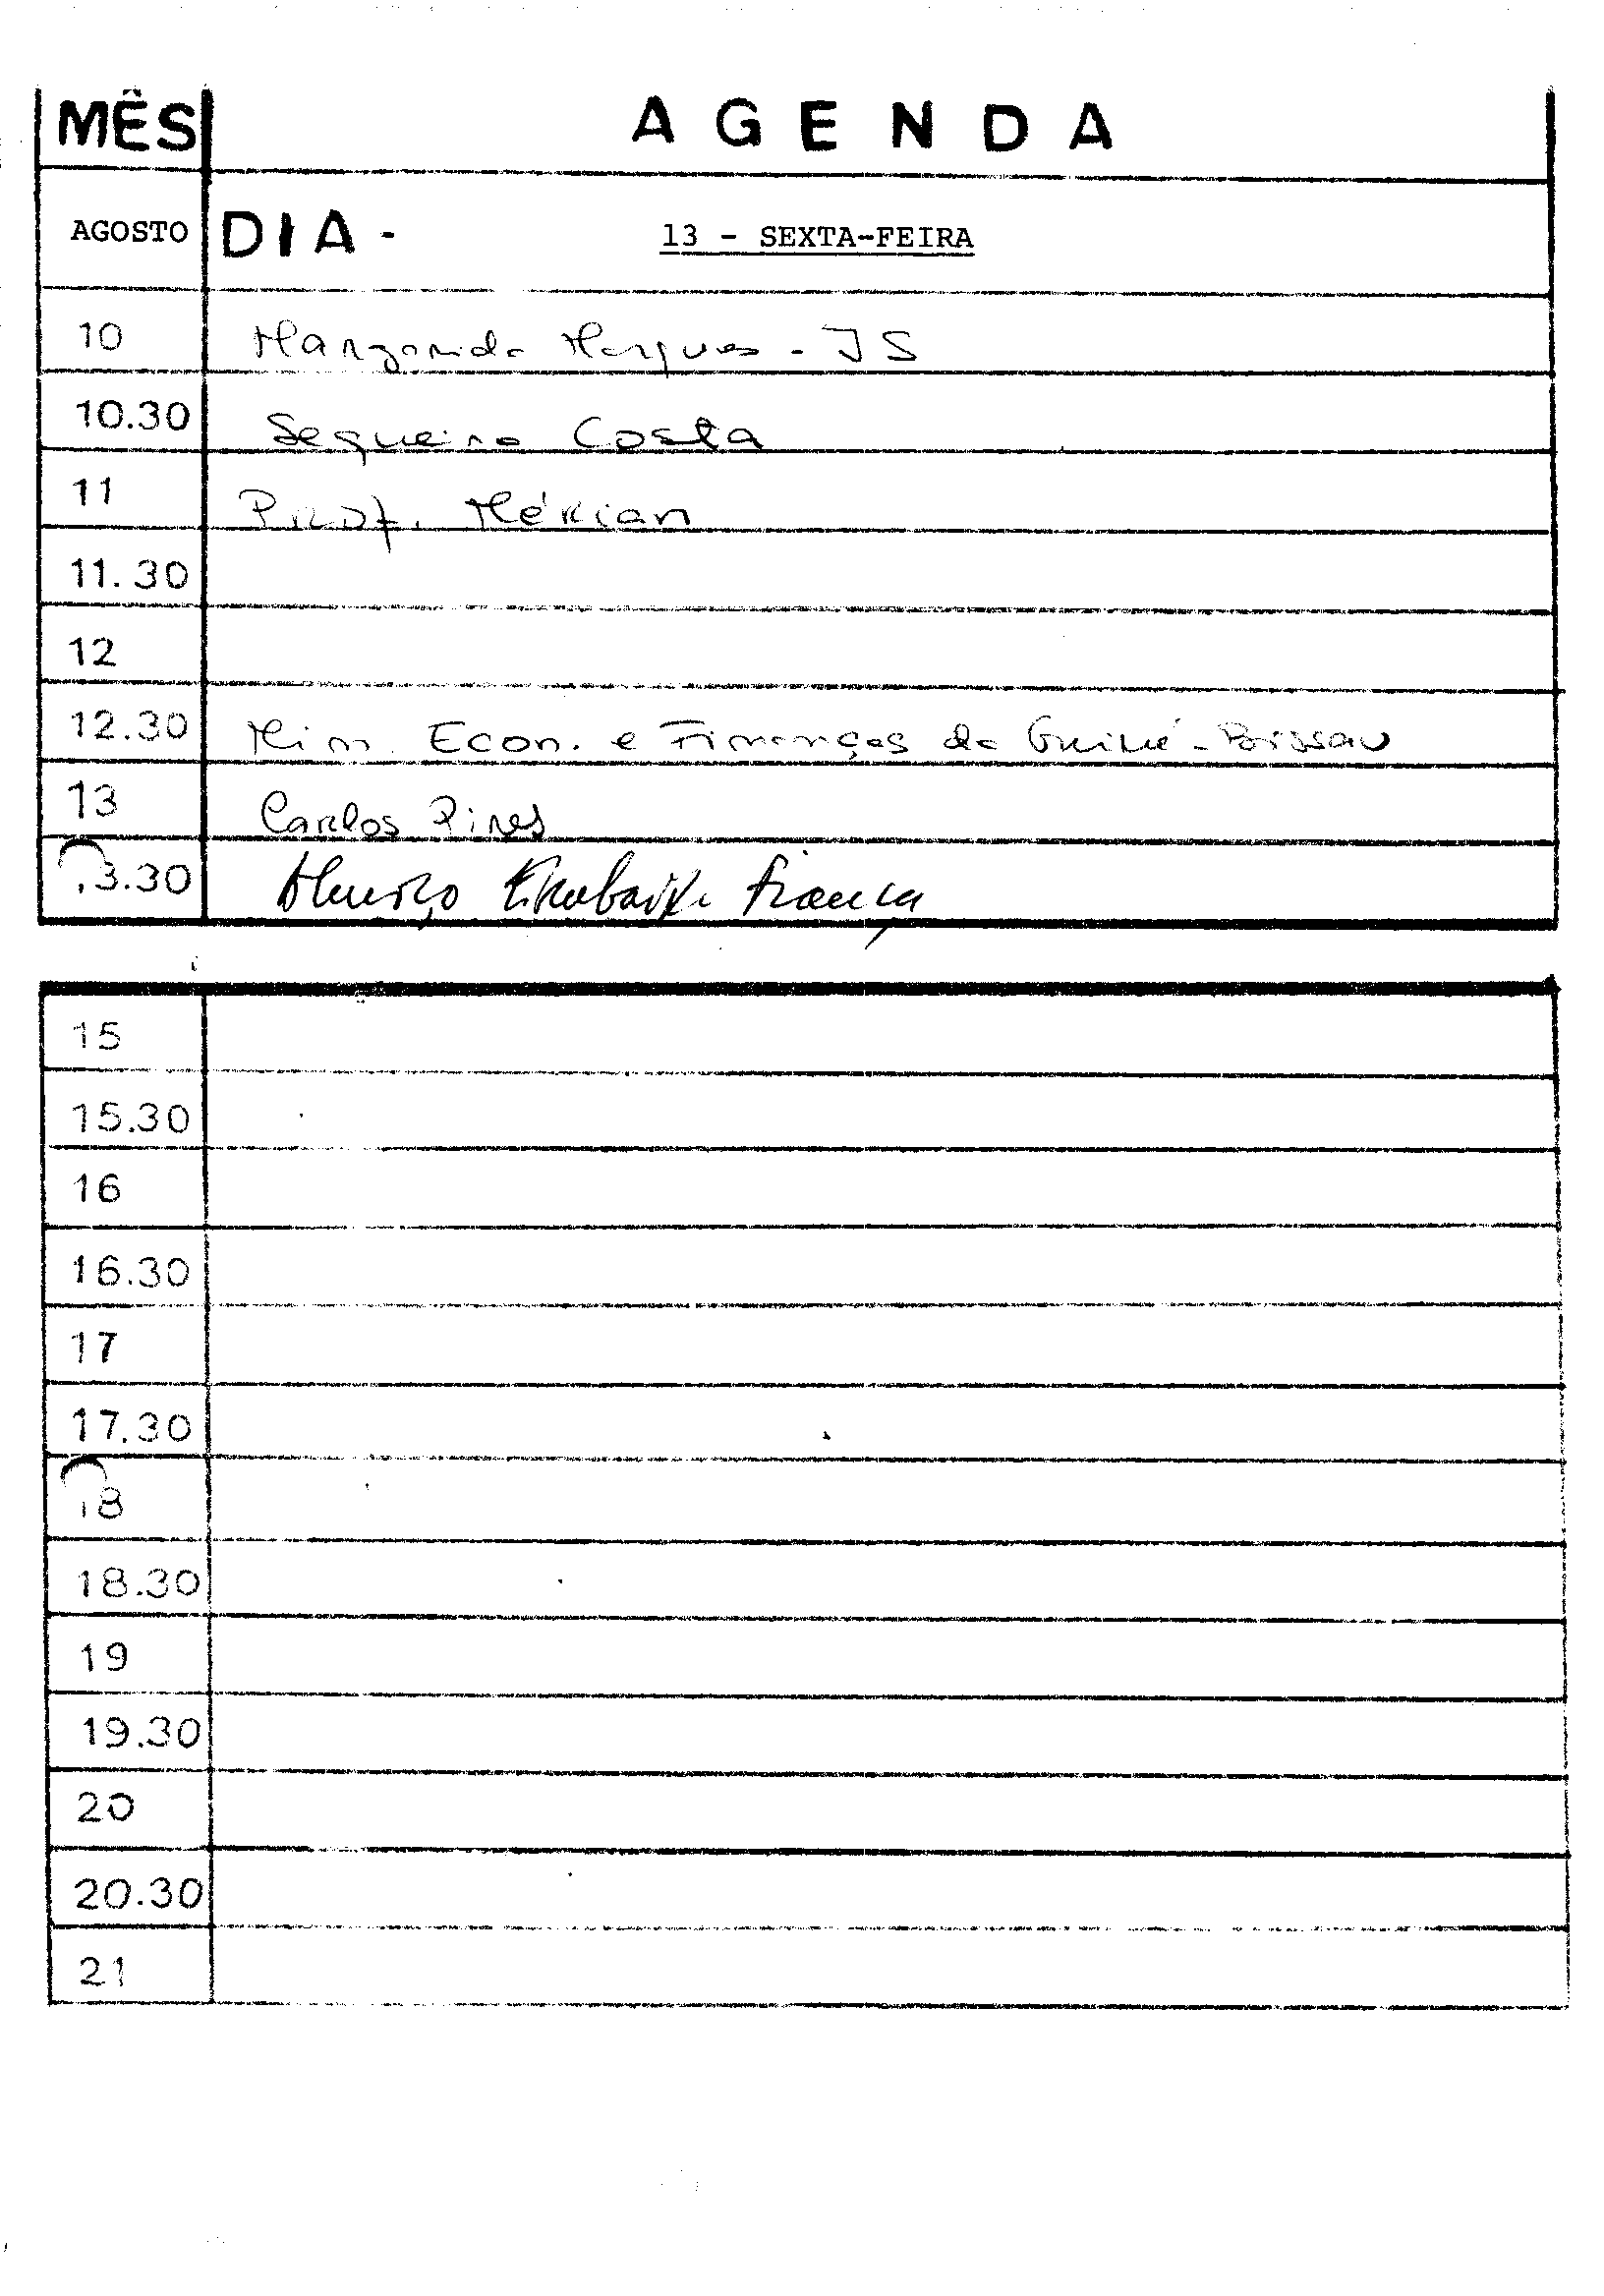 MÊS AGENDA
AGOSTO DIA - 13 - SEXTA-FEIRA
10 Margarida Marques - JS
10.30 Sequeira Costa
11 Prof. Mérian
11.30
12
12.30 Min. Econ. e Finanças da Guiné-Bissau
13 Carlos Pires
13.30 Almoço Embaix. França
15
15.30
16
16.30
17
17.30
18
18.30
19
19.30
20
20.30
21